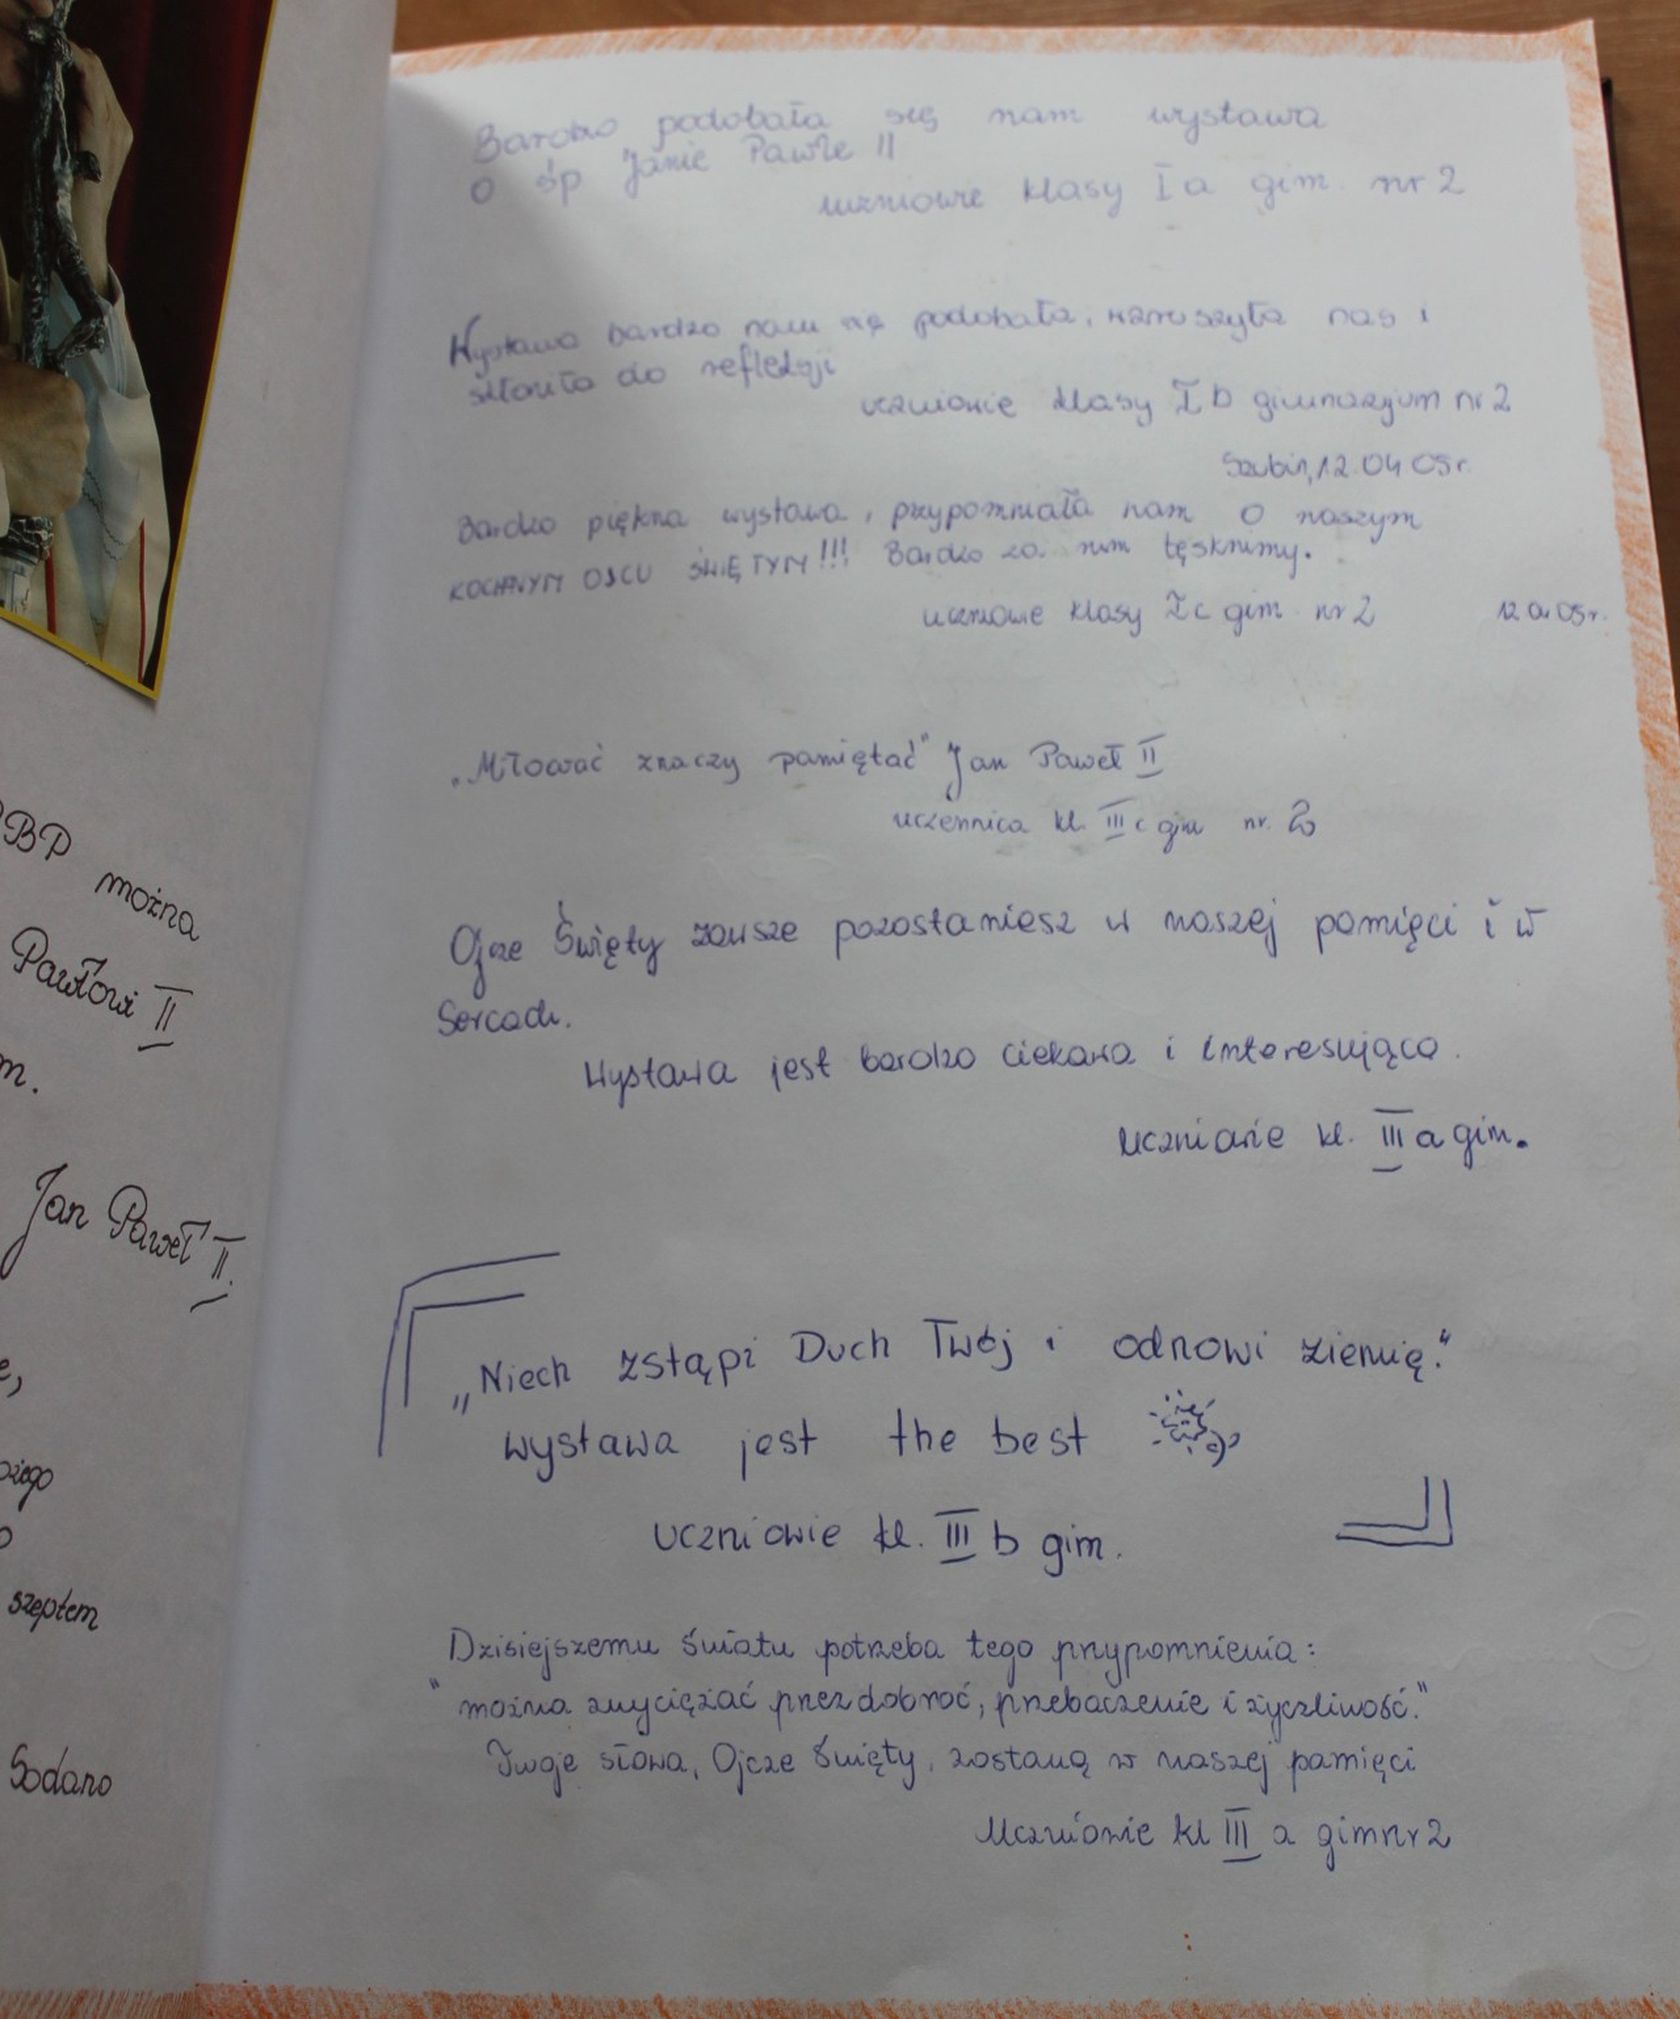 BP można
Pawłowi II
m.
Jan Paweł II.
e,
szeptem
Sodano
Bardzo podobała się nam wystawa
o śp Janie Pawle II
uczniowie klasy I a gim. nr 2
Wystawa bardzo nam się podobała, wzruszyła nas i
skłoniła do refleksji
uczniowie klasy I b gimnazjum nr 2
Szubin, 12.04 05r.
Bardzo piękna wystawa, przypomniała nam o naszym
KOCHANYM OJCU ŚWIĘTYM!!! Bardzo za nim tęsknimy.
uczniowie klasy I c gim. nr 2 12.04 05r.
„Miłować znaczy pamiętać" Jan Paweł II
uczennica kl. III c gim nr. 2
Ojcze Święty zawsze pozostaniesz w naszej pamięci i w
Sercach.
Wystawa jest bardzo ciekawa i interesująca.
uczniowie kl. III a gim.
„Niech zstąpi Duch Twój i odnowi ziemię."
wystawa jest the best
uczniowie kl. III b gim.
Dzisiejszemu światu potrzeba tego przypomnienia:
"można zwyciężać przez dobroć, przebaczenie i życzliwość."
Twoje słowa, Ojcze Święty, zostaną w naszej pamięci
Uczniowie kl III a gim nr 2